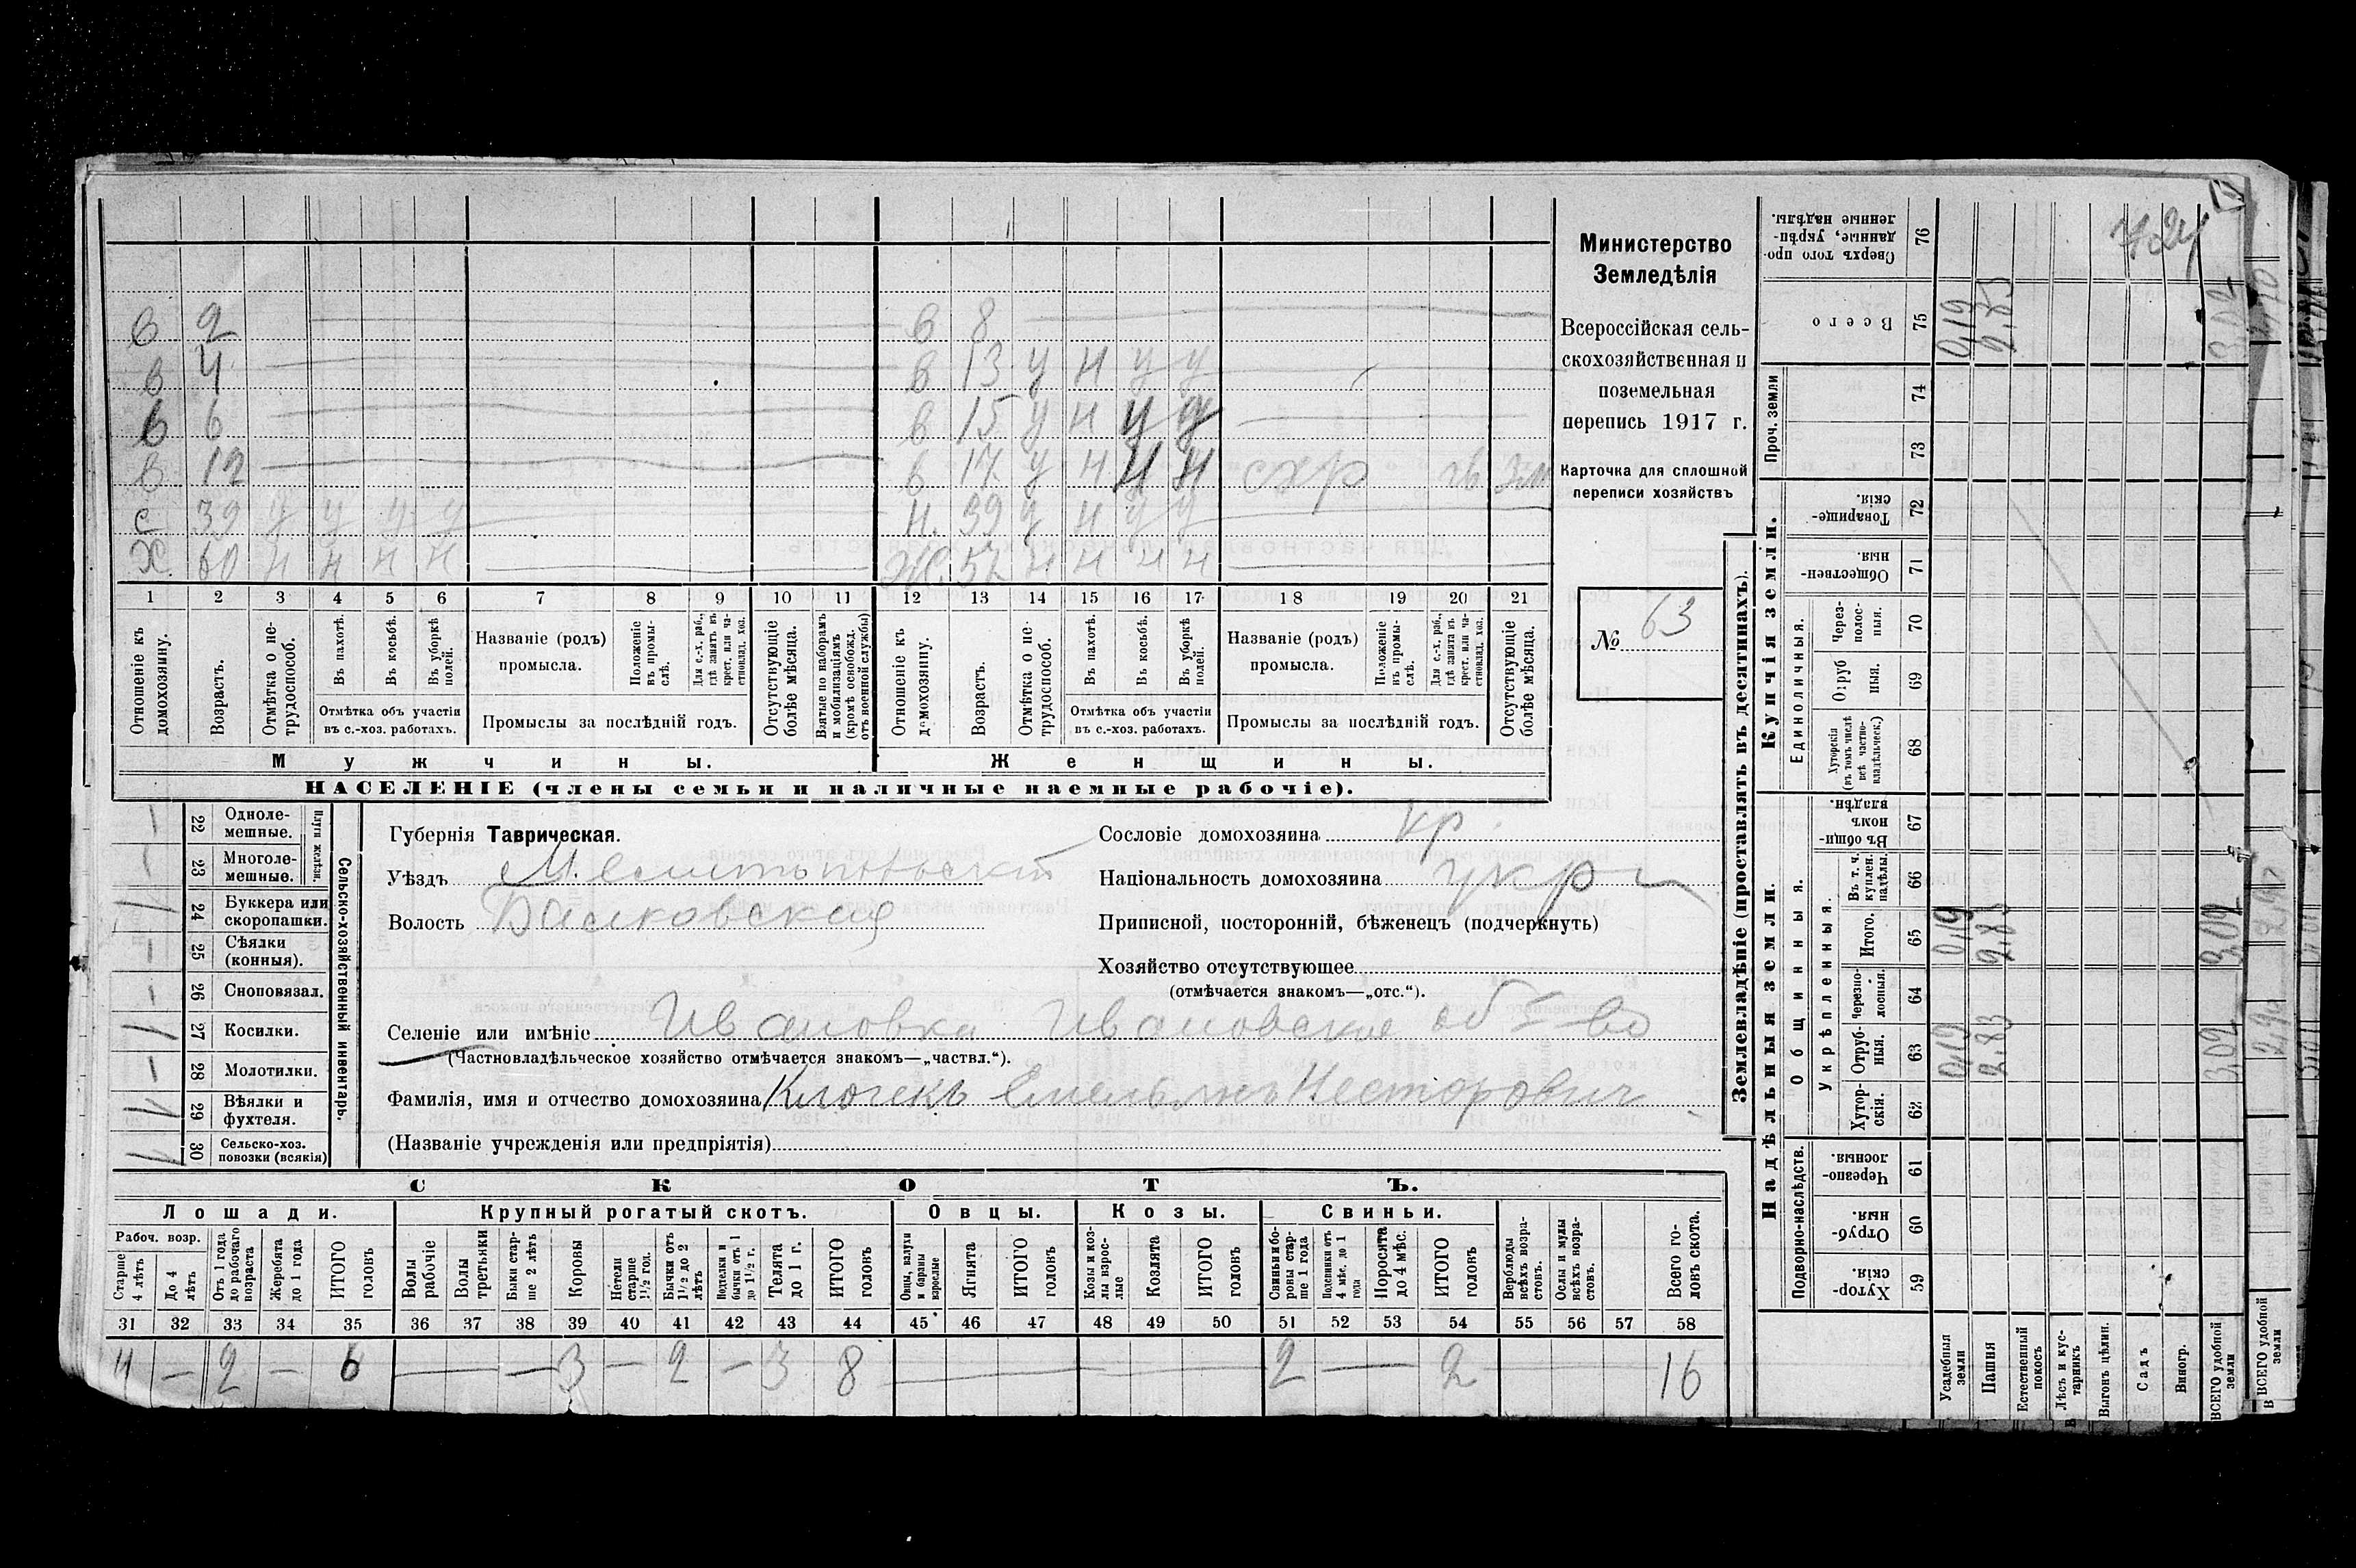 Министерство
Земледѣлія
Всероссійская сель-
скохозяйственная и
поземельная
перепись 1917 г.
Карточка для сплошной
переписи хозяйствъ
№ 63
в 2
в 4
в 6
в 12
с 39 у у у у
Х 60 н н н н
в 8
в 13 у н у у
в 15 у н у у
в 17 у н н н схр
39 у н у у
Ж. 57 н н н н
1 2 3 4 5 6 7 8 9 10 11 12 13 14 15 16 17 18 19 20 21
Отношеніе къ домохозяину.
Возрастъ.
Отмѣтка о не-трудоспособ.
Въ пахотѣ.
Въ косьбѣ.
Въ уборкѣ полей.
Отмѣтка объ участіи
въ с.-хоз. работахъ.
Названіе (родъ)
промысла.
Положеніе въ промы-слѣ.
Для с.-х. раб., гдѣ занятъ въ крест. или ча-стновлад. хоз.
Промыслы за послѣдній годъ.
Отсутствующіе болѣе мѣсяца.
Взятые по наборамъ и мобилизаціямъ (кромѣ освобожд. отъ военной службы)
Отношеніе къ домохозяину.
Возрастъ.
Отмѣтка о не-трудоспособ.
Въ пахотѣ.
Въ косьбѣ.
Въ уборкѣ полей.
Отмѣтка объ участіи
въ с.-хоз. работахъ.
Названіе (родъ)
промысла.
Положеніе въ промы-слѣ.
Для с.-х. раб., гдѣ занята въ крест. или ча-стновлад. хоз.
Промыслы за послѣдній годъ.
Отсутствующіе болѣе мѣсяца.
Мужчины.
Женщины.
НАСЕЛЕНІЕ (члены семьи и наличные наемные рабочіе).
Сельско-хозяйственный инвентарь.
Плуги желѣзн.
22 Одноле-мешные.
23 Многоле-мешные.
24 Буккера или скоропашки. 1
25 Сѣялки (конныя).
26 Сноповязал.
27 Косилки. 1
28 Молотилки.
29 Вѣялки и фухтеля. 1
30 Сельско-хоз. повозки (всякія) 1
Губернія Таврическая.
Уѣздъ Мелитопольскій
Волость Балковская
Сословіе домохозяина кр.
Національность домохозяина укр
Приписной, посторонній, бѣженецъ (подчеркнуть)
Хозяйство отсутствующее
(отмѣчается знакомъ—„отс.“).
Селеніе или имѣніе Ивановка Ивановское об-во
(Частновладѣльческое хозяйство отмѣчается знакомъ—„частвл.“).
Фамилія, имя и отчество домохозяина Клочекъ Емельянъ Несторович
(Названіе учрежденія или предпріятія)
СКОТЪ.
Лошади. Крупный рогатый скотъ. Овцы. Козы. Свиньи.
Рабоч. возр.
Старше 4 лѣтъ
До 4 лѣтъ
Отъ 1 года до рабочаго возраста
Жеребята до 1 года
ИТОГО головъ
Волы рабочіе
Волы третьяки
Быки стар-ше 2 лѣтъ
Коровы
Нетели старше 1½ год.
Бычки отъ 1½ до 2 лѣтъ
Подтелки и бычки отъ 1 до 1½ г.
Телята до 1 г.
ИТОГО головъ
Овцы, валухи и бараны взрослые
Ягнята
ИТОГО головъ
Козы и коз-лы взрос-лые
Козлята
ИТОГО головъ
Свиньи и бо-ровы стар-ше 1 года
Подсвинки отъ 4 мѣс. до 1 года
Поросята до 4 мѣс.
ИТОГО головъ
Верблюды всѣхъ возра-стовъ.
Ослы и мулы всѣхъ возра-стовъ.
Всего го-ловъ скота.
31 32 33 34 35 36 37 38 39 40 41 42 43 44 45 46 47 48 49 50 51 52 53 54 55 56 57 58
4 — 2 — 6 — — — 3 — 2 — 3 8 — — — 2 — 2 16
Землевладѣніе (проставлять въ десятинахъ).
Надѣльныя земли.
Купчія земли.
Проч. земли
Подворно-наслѣдств.
Общинныя.
Укрѣпленныя.
Единоличныя.
59 Хутор-скія.
60 Отруб-ныя.
61 Черезпо-лосныя.
62 Хутор-скія.
63 Отруб-ныя. 0,19 2.83 3.02
64 Черезпо-лосныя.
65 Итого. 0,19 2.83 3,02
66 Въ т. ч. куплен. надѣлы.
67 Въ общи-номъ владѣн.
68 Хуторскія (въ томъ числѣ всѣ частно-владѣльческ.)
69 Отруб ныя.
70 Через-полос-ныя.
71 Обществен-ныя.
72 Товарище-скія.
73
74
75 Всего 0,19 2.83 3,02
76 Сверхъ того про-данные, укрѣп-ленные надѣлы.
Усадебныя земли
Пашня
Естественный покосъ
Лѣсъ и кус-тарникъ
Выгонъ цѣлин.
Садъ
Виногр.
ВСЕГО удобной земли
В ВСЕГО удобной земли